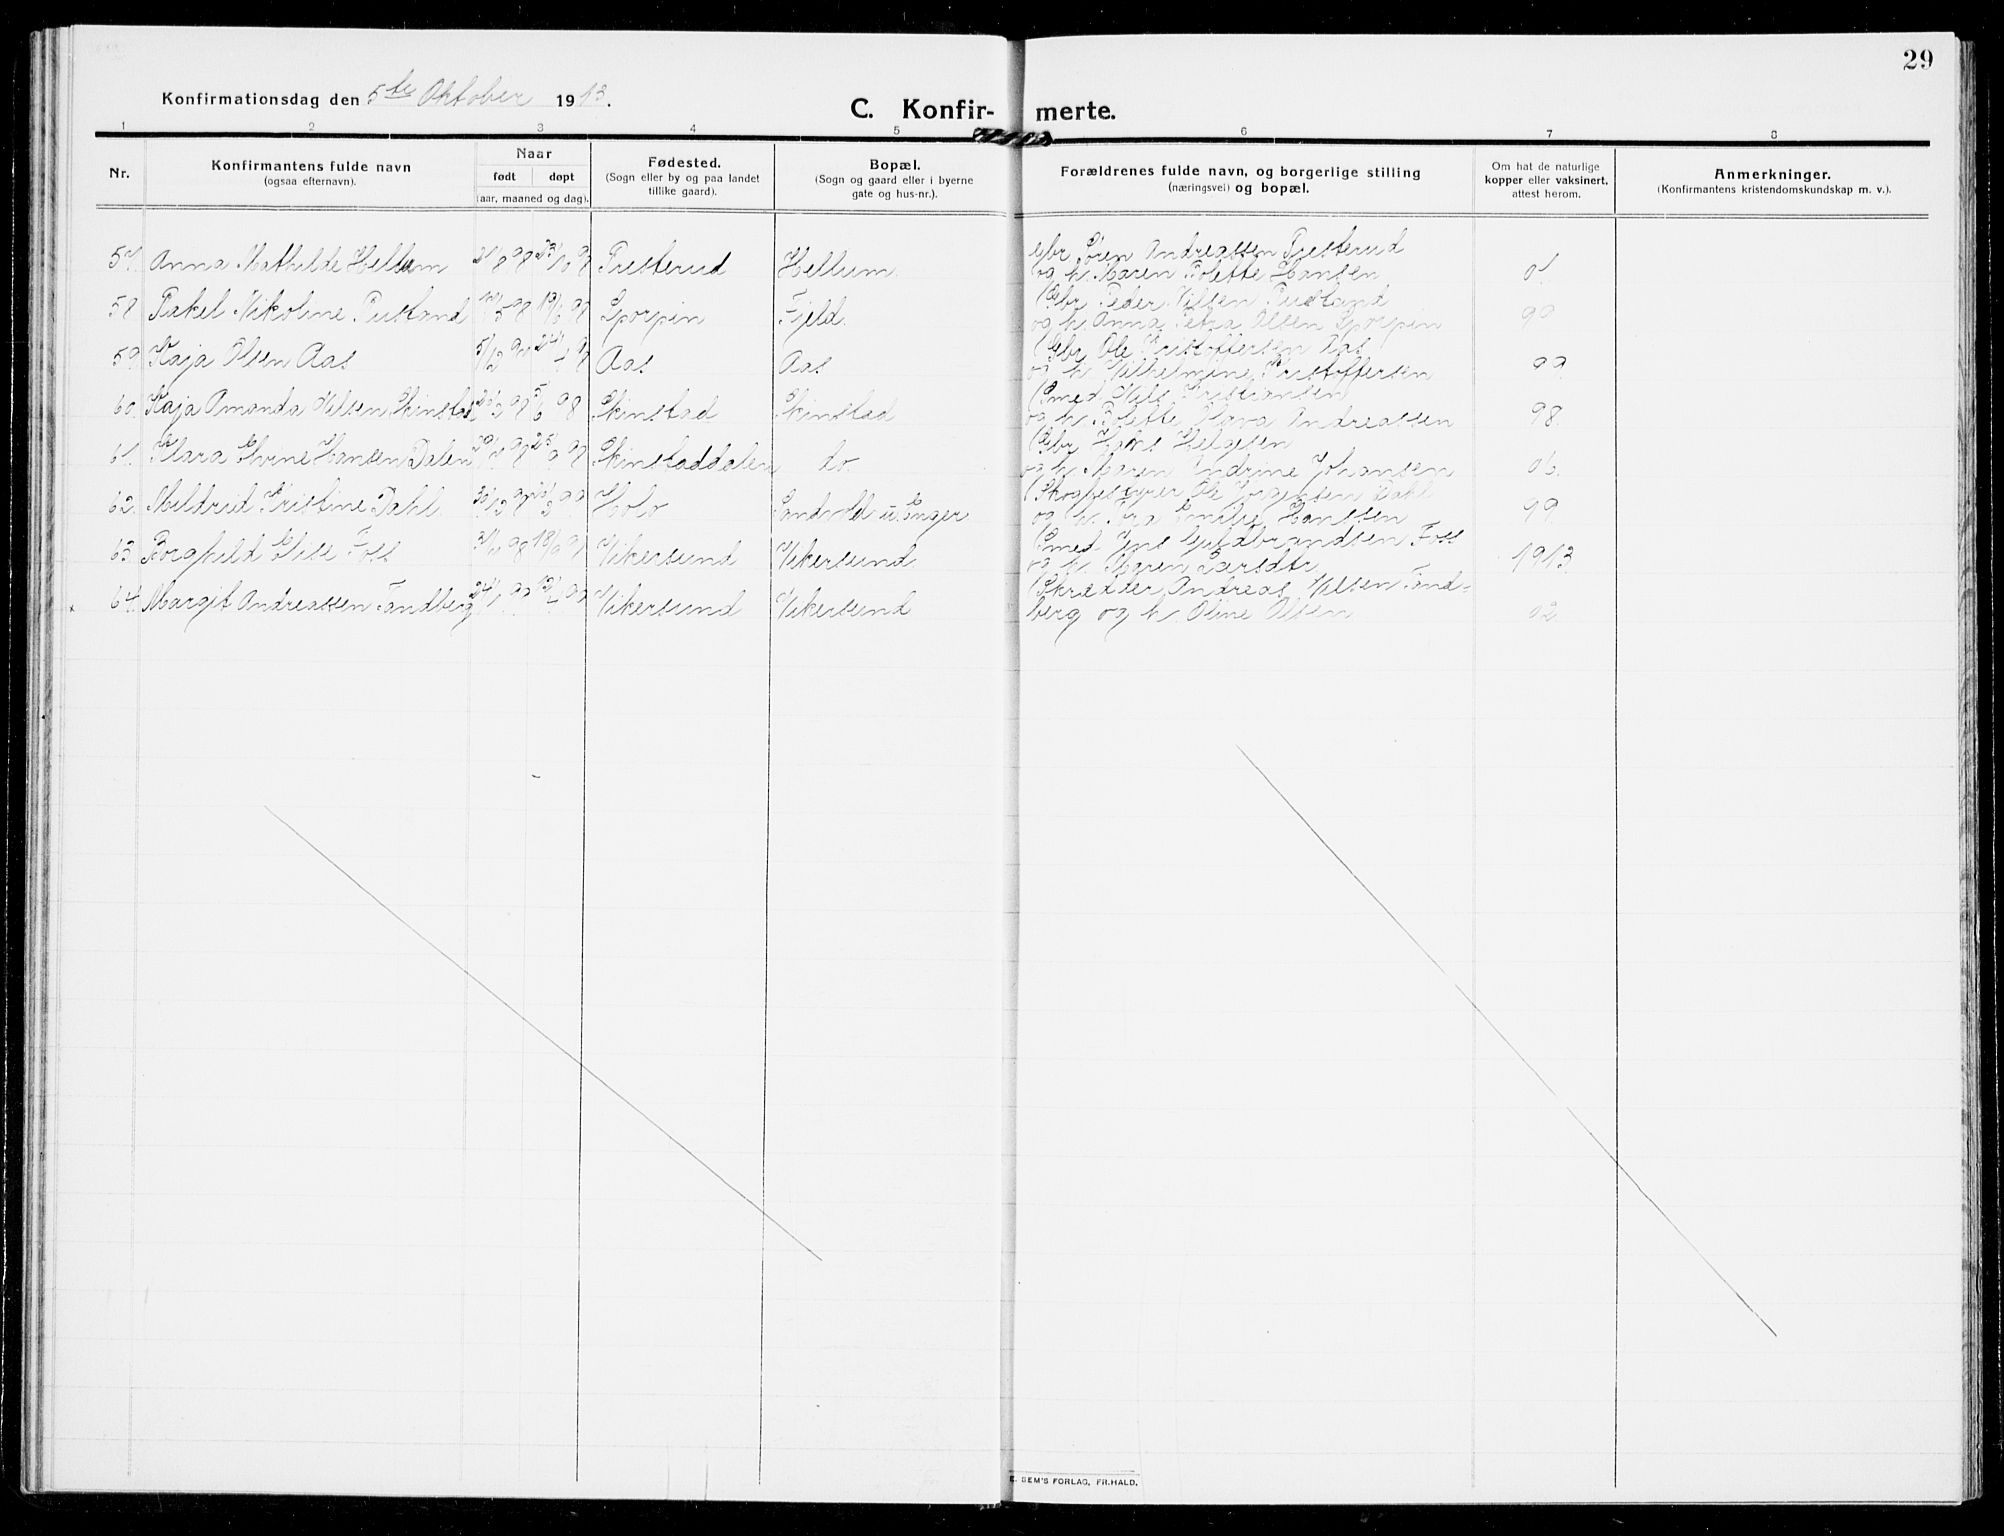 29
Konfirmationsdag den 5te Oktober 1913.
C. Konfirmerte.
1 2 3 4 5 6 7 8
Nr.
Konfirmantens fulde navn
(ogsaa efternavn).
Naar
født døpt
(aar, maaned og dag).
Fødested.
(Sogn eller by og paa landet
tillike gaard).
Bopæl.
(Sogn og gaard eller i byerne
gate og hus-nr.).
Forældrenes fulde navn, og borgerlige stilling
(næringsvei) og bopæl.
Om hat de naturlige
kopper eller vaksinert,
attest herom.
Anmerkninger.
(Konfirmantens kristendomskundskap m. v.).
57. Anna Mathilde Hellum Presterud Hellum. Gbr Søren Andreassen Presterud
og h. Maren Bolette Hansen 01
58 Rakel Nikoline Pusland Fjeld. Gbr Peder Nilsen Pusland
og h. Anna Petra Olsen 99
59. Kaja Olsen Aas 5/12 Aas Aas Gbr Ole Kristoffersen Aas
og h. Vilhelmine Kristoffersen 99.
60. Kaja Amanda Nilsen Skinstad 5/6 98 Skinstad Skinstad Smed Nils Kristiansen
og h. Bolette Olava Andreassen 98.
61. Klara Elvine Hansen Dalen Skinstaddalen do. Gbr Hans Helgesen
og h. Maren Andrine Johansen 06.
62. Meldrid Kristine Dahl Holo Sandvold u. Enger Skogbestyrer Ole Jørgensen Dahl
og h. Emilie Hanssen 99.
63. Borghild Elise Foss Vikersund Vikersund Smed Jens Guldbrandsen Foss
og h. Maren Larsdtr 1913.
64. Margit Andreassen Tandberg Vikersund Vikersund Skrædder Andreas Nilsen Tand-
berg og h. Oline Olsen 02
E. SEM'S FORLAG, FR.HALD.